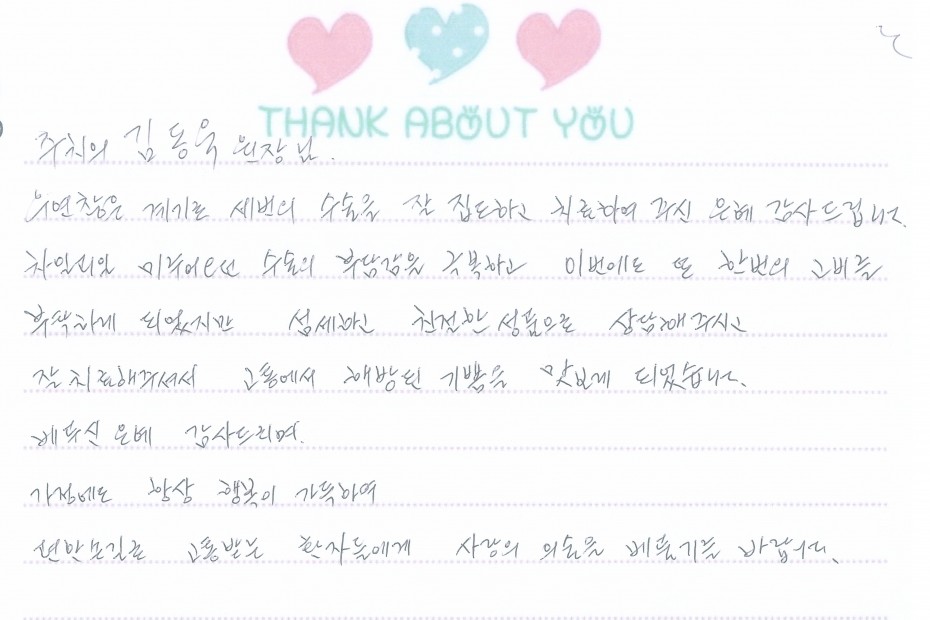 THANK ABOUT YOU
주치의 김동욱 원장님.
우연찮은 계기로 세번의 수술을 잘 집도하고 치료하여 주신 은혜 감사드립니다.
차일피일 미루어오던 수술의 부담감을 극복하고 이번에도 또 한번의 고비를
부딪히게 되었지만 섬세하고 친절한 성품으로 상담해주시고
잘 치료해주셔서 고통에서 해방된 기쁨을 맛보게 되었습니다.
베푸신 은혜 감사드리며.
가정에도 항상 행복이 가득하여
고통받는 환자들에게 사랑의 의술을 베풀기를 바랍니다.